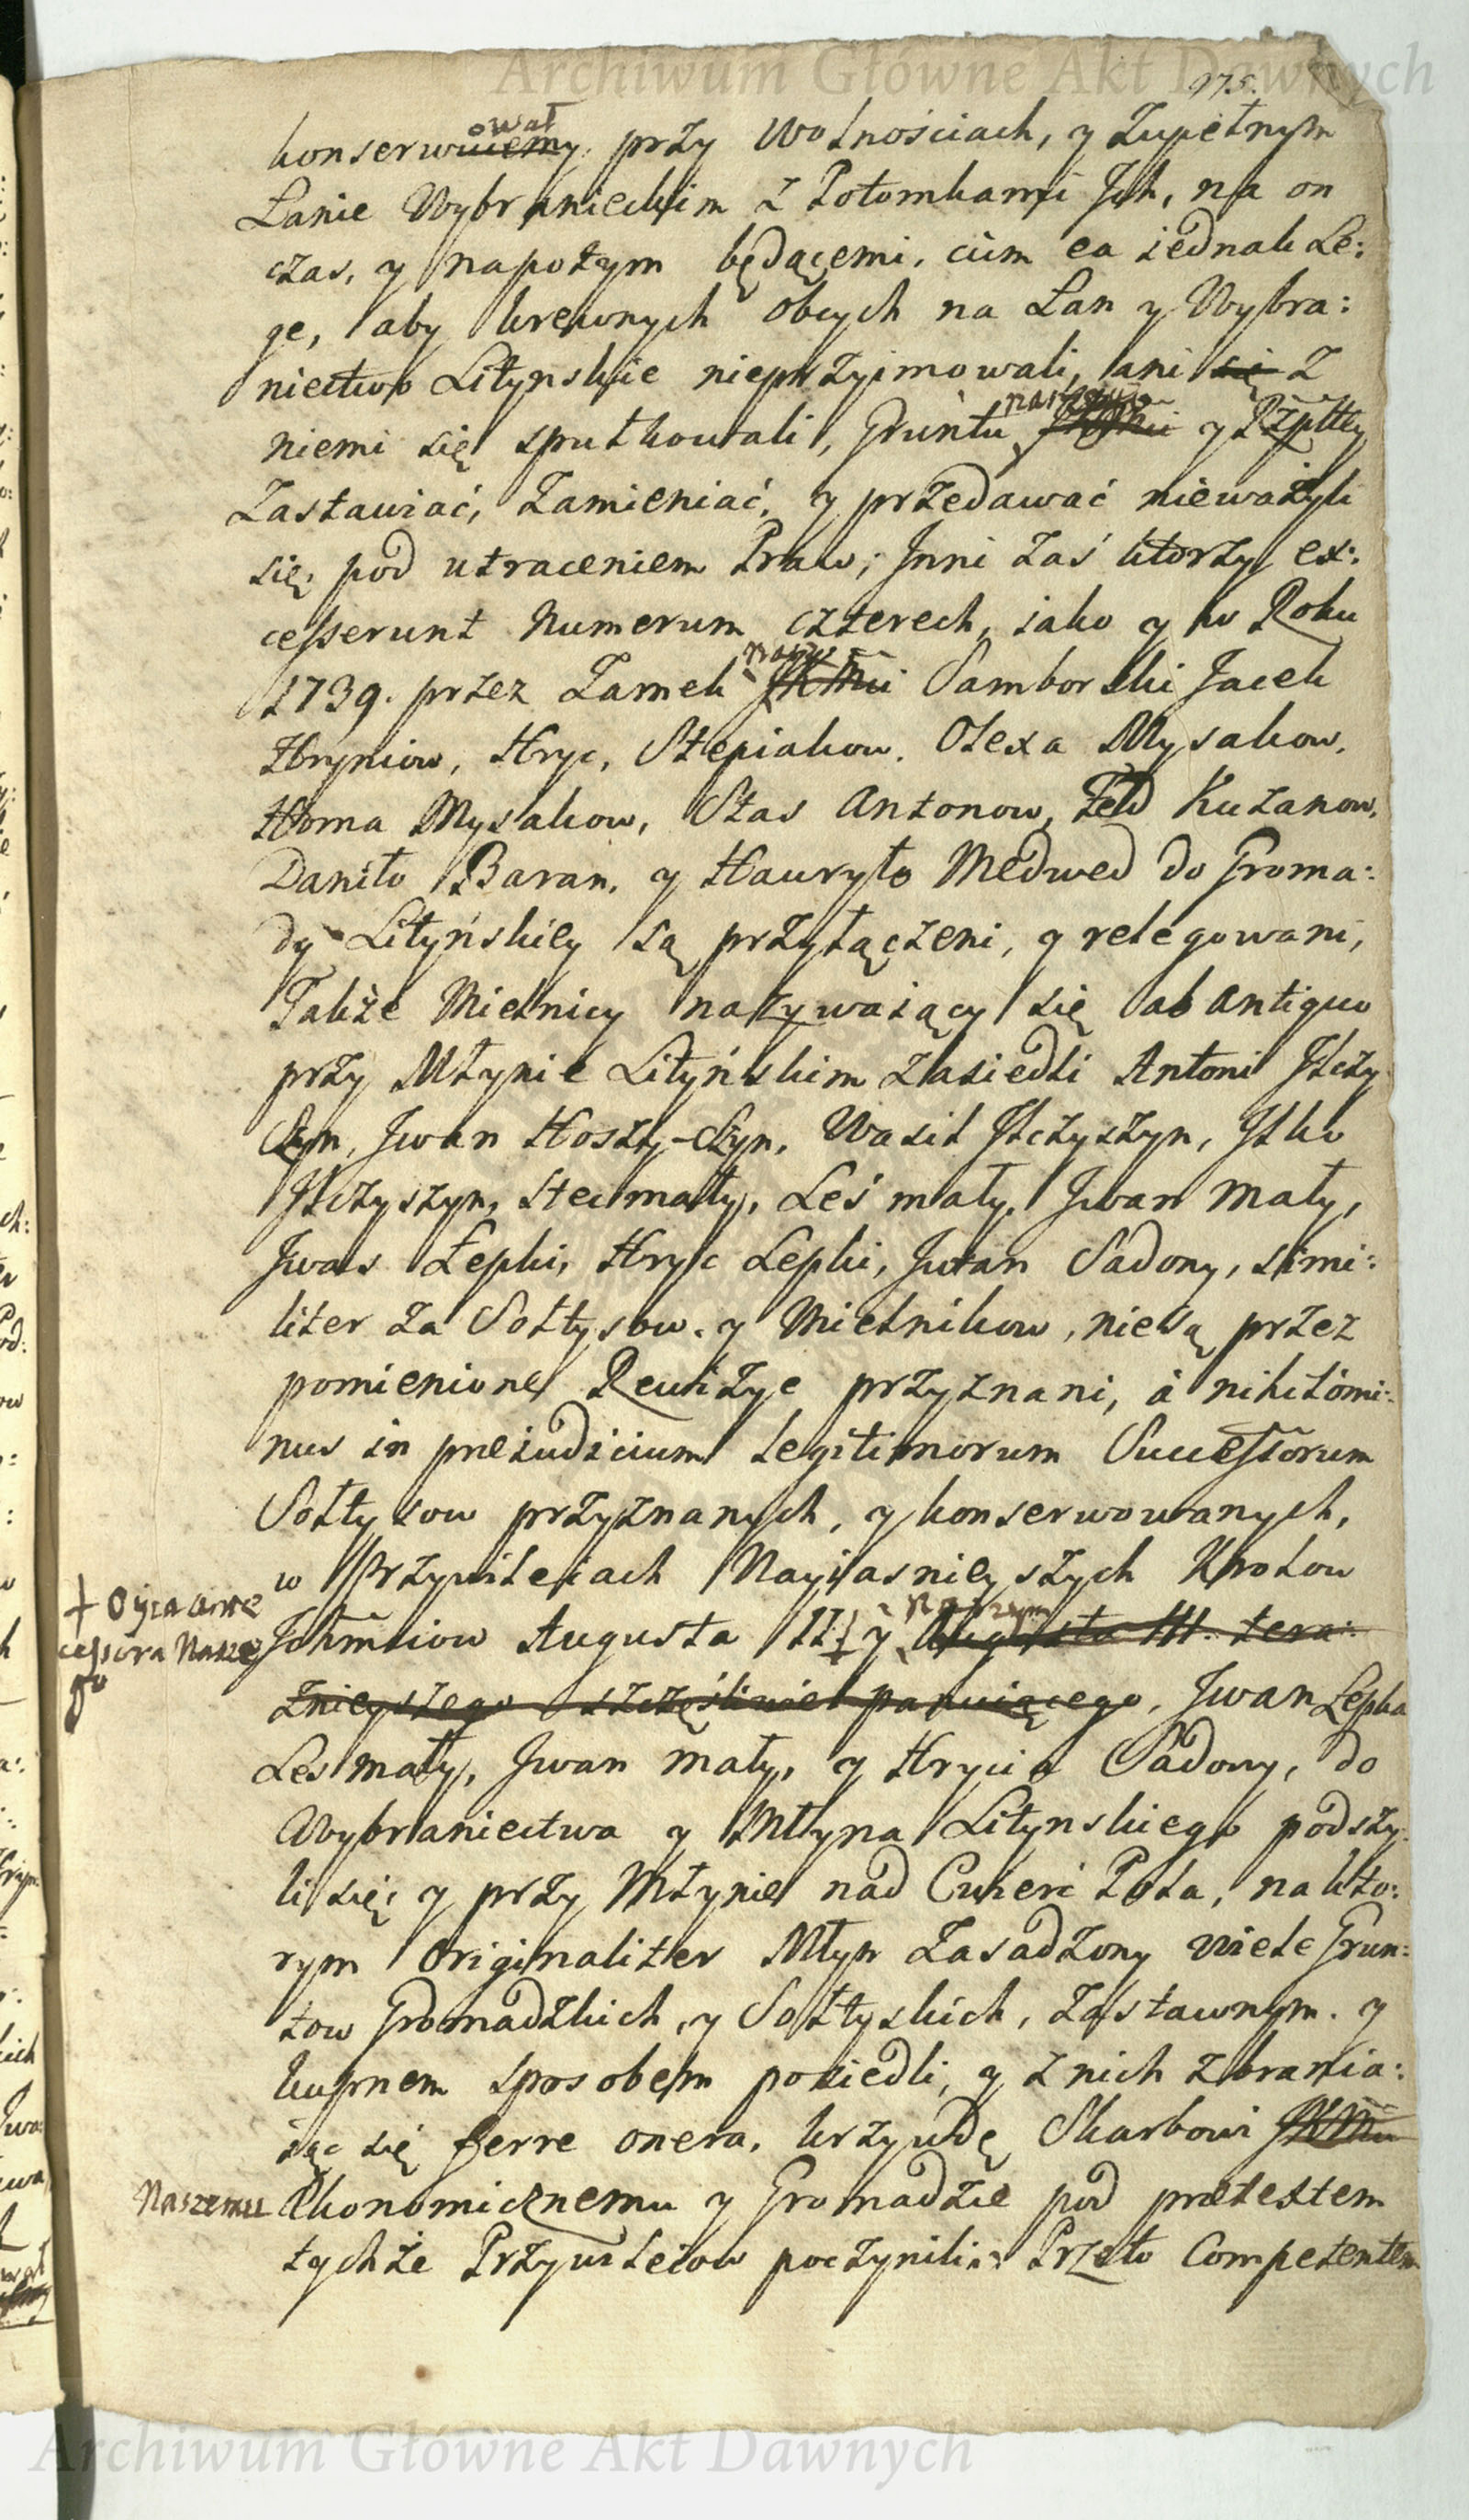 Archiwum Główne Akt Dawnych
175.
ował
konserwuiemy przy Wolnościach, y zupełnym
Łanie Wybranieckim z Potomkami Jch, na on
czas, y napotym będącemi, cum ea iednak Le:
ge, aby krewnych obcych na Łan y Wybra:
niectwo Litynskie nieprzyimowali, ani się z
naszego
niemi się sputkowali, Gruntu JKMci y Rzpltey
Zastawiać, Zamieniać, y przedawać nieważyli
się, pod utraceniem Praw; Jnni zaś ktorzy ex:
cesserunt Numerum czterech, iako y w Roku
nasz
1739. przez Zamek JKMci Samborski Jacek
Hryniow, Hryc, Stepiakow. Olexa Mysakow,
Homa Mysakow, Stas Antonow, Fed Kuzanow,
Daniło Baran, y Hawryło Medwed do Groma:
dy Lityńskiey są przyłączeni, y relegowani,
Także Mielnicy nazywaiący się ab antiquo
przy Młynie Lityńskim zasiedli Antoni Jlczy
Szyn, Jwan Hoszy-Szyn, Wasil Jlczyszyn, Jlko
Jlczyszyn, Stec mały, Leś mały, Jwan mały,
Jwas Łepki, Hryc Lepki, Jwan Sadony, simi:
liter za Sołtysow y Mielnikow, niesą przez
pomienione Rewizye przyznani, a nihilomi:
nus in preiudicium legitimorum Successorum
Sołtysow przyznanych, y konserwowanych,
w Przywileiach Nayiasnieyszych Krolow
+ Oyca Ante
cessora Nasze
go
Naszym
Jchmciow Augusta II + y Augusta III. tera:
znieyszego szczęśliwie panuiącego, Jwan Lepka
Les mały, Jwan mały, y Hrycia Sadony, do
Wybraniectwa y Młyna Litynskiego podszy:
li się, y przy Młynie nad Cwierć Pola, na kto:
rym Originaliter Młyn Zasadzony wiele Grun:
tow Gromadzkich, y Sołtyskich, zastawnym y
kupnem sposobem posiedli, y z nich zbrania:
iąc się ferre onera, krzywdę Skarbowi JKMci
Naszemu Ekonomicznemu y Gromadzie pod pretextem
tychże Przywileiow poczynili: Przeto Competentem
Archiwum Główne Akt Dawnych